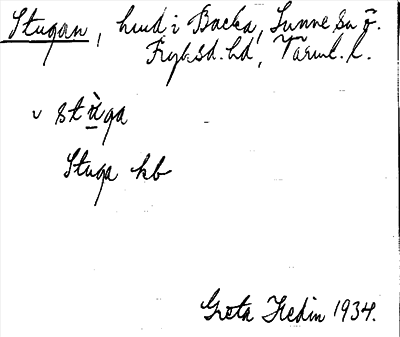 Stugan, hmd i Backa, Sunne sn ö.
Fryksd. hd, Värml. l.
v stùga
Stuga hb
Greta Hedin 1934.